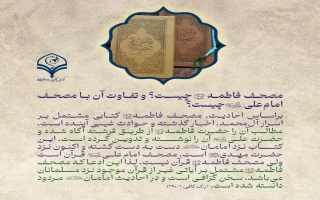 مصحف فاطمه ﷥ چیست؟ و تفاوت آن با مصحف
امام علی چیست؟
براساس احادیث، مصحف فاطمه کتابی مشتمل بر
اسرار آل‌محمد، اخبار گذشته و حوادث غیبی آینده است.
مطالب آن را حضرت فاطمه از طریق فرشته آگاه شده و
حضرت علی آن را نوشته و تدوین کرده است. این
کتاب نزد امامان دست به دست گشته و اکنون نزد
حضرت مهدی است. مصحف امام علی قرآن است
ولی مصحف فاطمه قرآن نیست. لذا این ادعا که مصحف
فاطمه مشتمل بر آیاتی غیر از قرآن موجود نزد مسلمانان
می‌باشد، سخن گزافی است و در احادیث امامان مردود
دانسته شده است.